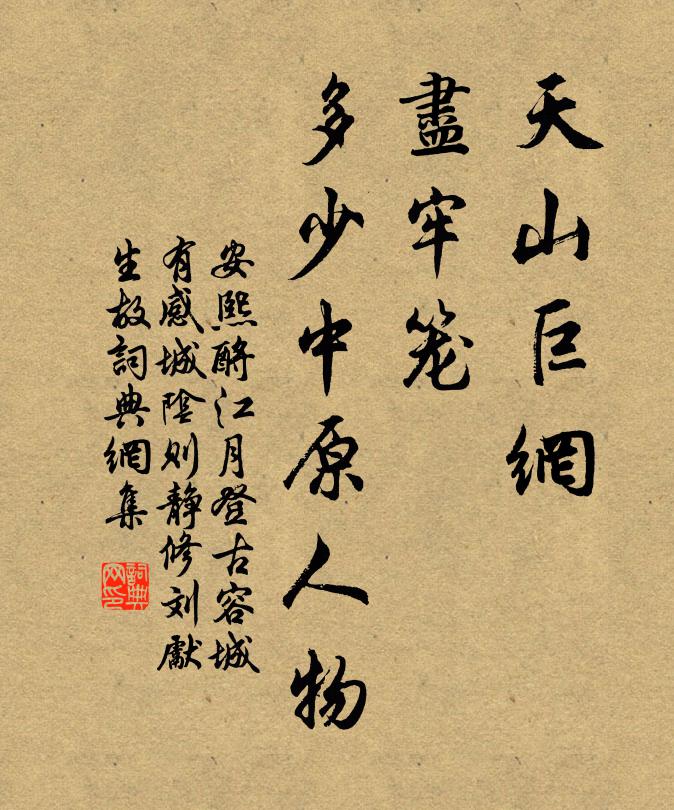 天山巨網
盡牢笼
多少中原人物
安熙酹江月登古容城
有感城陰则静修刘獻
生故詞典網集
詞典网印